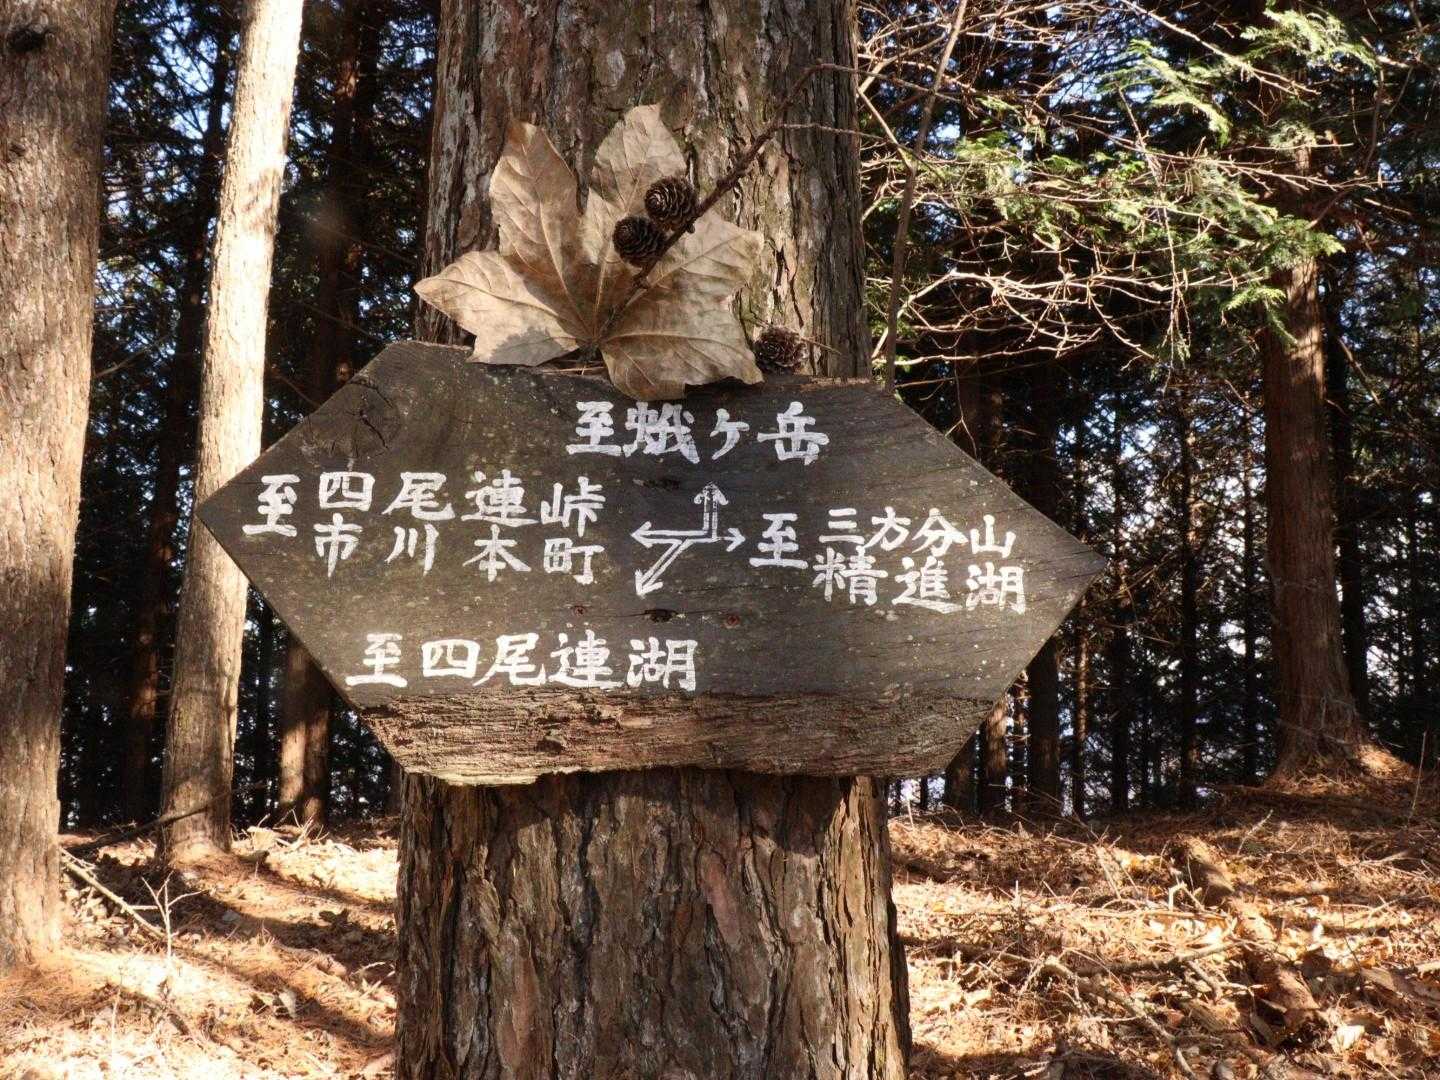 至蛾ヶ岳
至四尾連峠
市川本町
至三方分山
精進湖
至四尾連湖